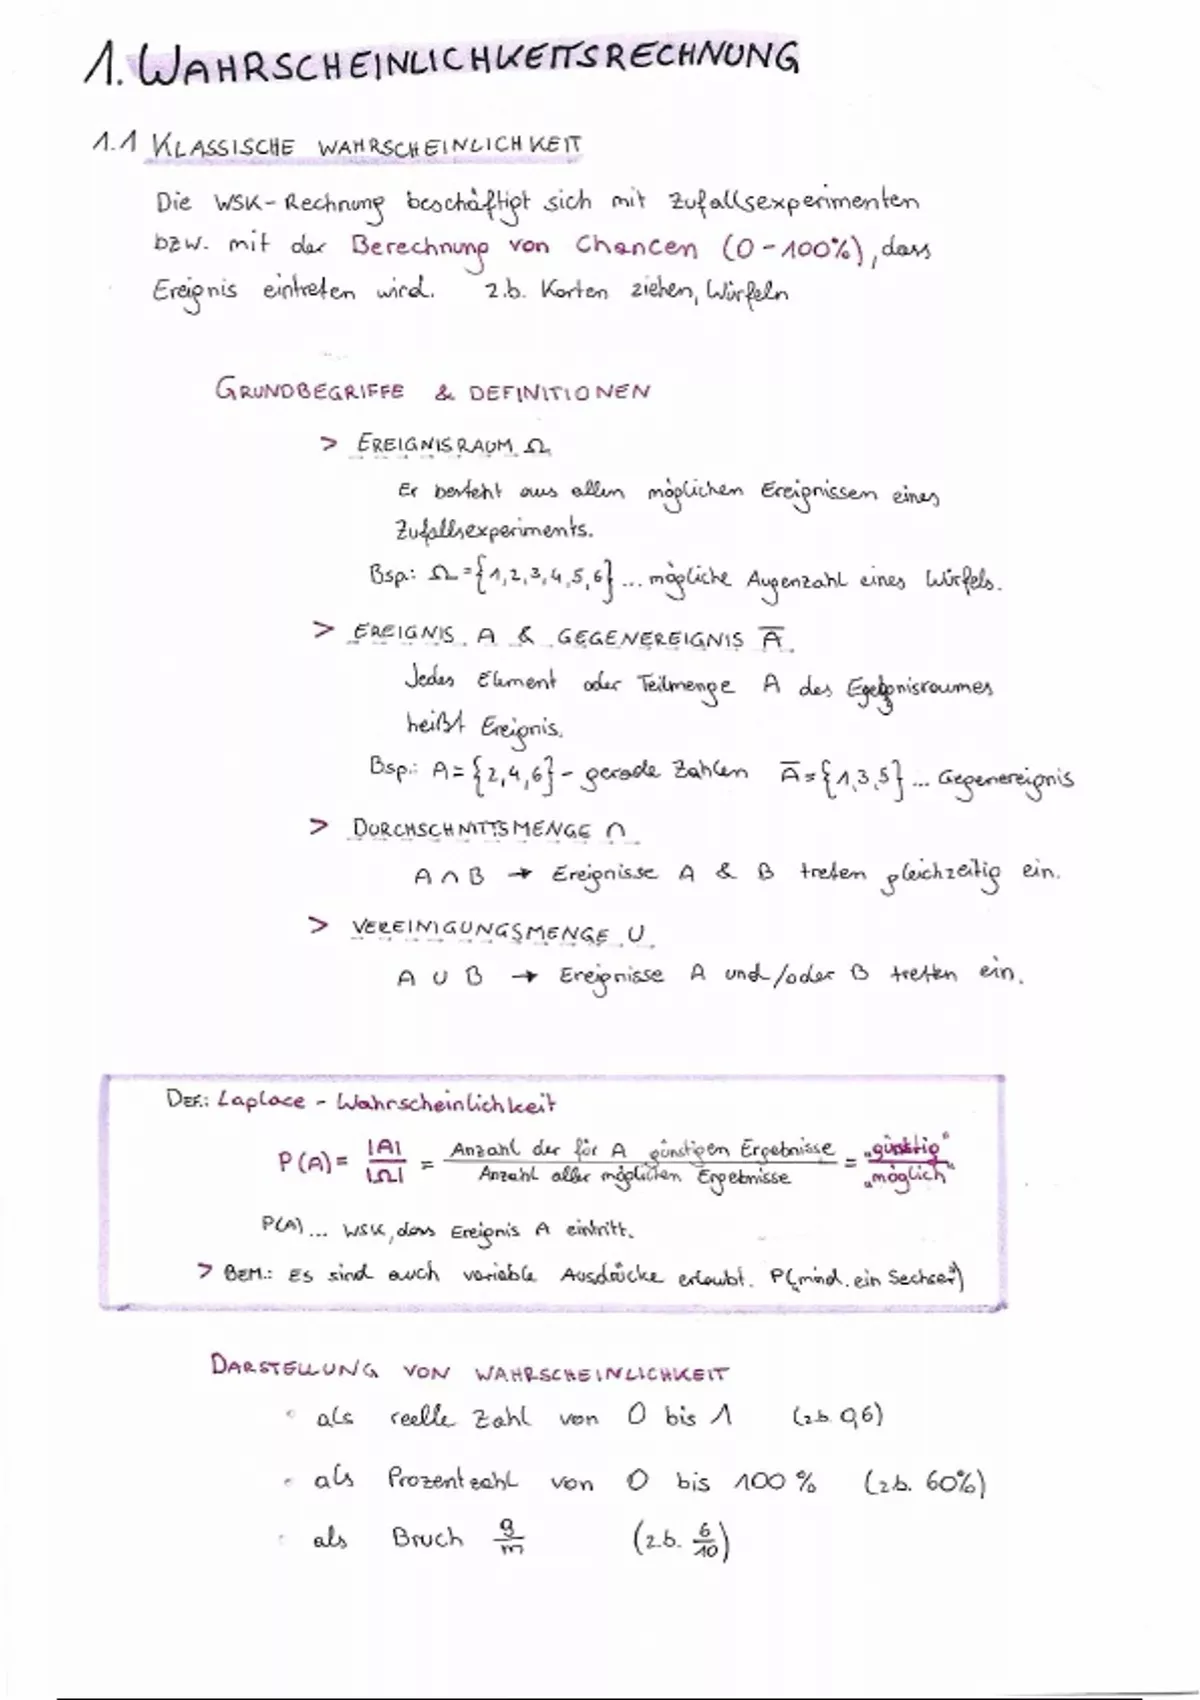 1. WAHRSCHEINLICHKEITSRECHNUNG
1.1 KLASSISCHE WAHRSCHEINLICHKEIT
Die WSK-Rechnung beschäftigt sich mit Zufallsexperimenten
bzw. mit der Berechnung von Chancen (0-100%), dass
Ereignis eintreten wird. z.b. Karten ziehen, Würfeln
GRUNDBEGRIFFE & DEFINITIONEN
> EREIGNISRAUM Ω
Er besteht aus allen möglichen Ereignissen eines
Zufallsexperiments.
Bsp.: Ω = {1,2,3,4,5,6} ... mögliche Augenzahl eines Würfels.
> EREIGNIS A & GEGENEREIGNIS A̅
Jedes Element oder Teilmenge A des Ergebnisraumes
heißt Ereignis.
Bsp.: A = {2,4,6} - gerade Zahlen A̅ = {1,3,5} ... Gegenereignis
> DURCHSCHNITTSMENGE ∩
A ∩ B → Ereignisse A & B treten gleichzeitig ein.
> VEREINIGUNGSMENGE ∪
A ∪ B → Ereignisse A und/oder B treten ein.
DEF.: Laplace - Wahrscheinlichkeit
P(A) = |A| / |Ω| = Anzahl der für A günstigen Ergebnisse / Anzahl aller möglichen Ergebnisse = „günstig“ / „möglich“
P(A) ... WSK, dass Ereignis A eintritt.
> BEM.: Es sind auch variable Ausdrücke erlaubt. P(„mind. ein Sechser“)
DARSTELLUNG VON WAHRSCHEINLICHKEIT
• als reelle Zahl von 0 bis 1 (z.b. 0,6)
• als Prozentzahl von 0 bis 100 % (z.b. 60%)
• als Bruch g/m (z.b. 6/10)